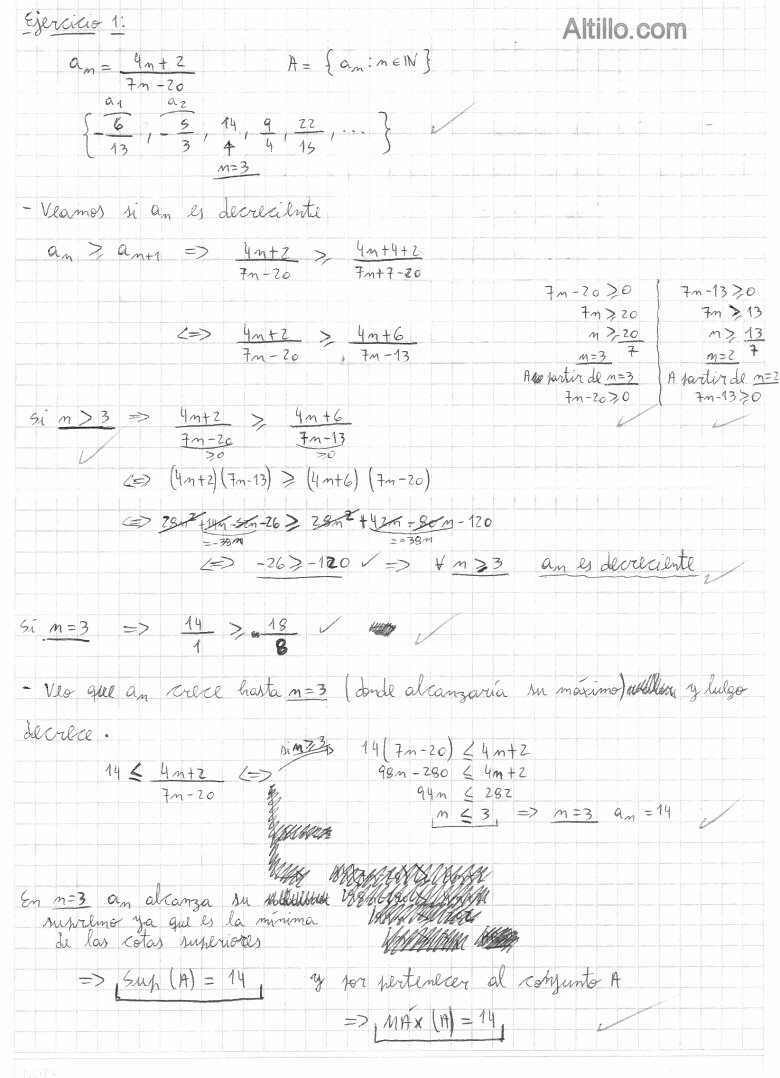 Ejercicio 1:
Altillo.com
an = (4n+2)/(7n-20)    A = { an : n ∈ ℕ }
a1  a2
{ -6/13 , -5/3 , 14 , 9/4 , 22/15 , ... }
n=3
- Veamos si an es decreciente
an ≥ an+1 => (4n+2)/(7n-20) ≥ (4n+4+2)/(7n+7-20)
<=> (4n+2)/(7n-20) ≥ (4n+6)/(7n-13)
7n-20 ≥ 0
7n ≥ 20
n ≥ 20/7
n=3
A partir de n=3
7n-20 ≥ 0
7n-13 ≥ 0
7n ≥ 13
n ≥ 13/7
n=2
A partir de n=2
7n-13 ≥ 0
Si n > 3 => (4n+2)/(7n-20) ≥ (4n+6)/(7n-13)
≥0  >0
<=> (4n+2)(7n-13) ≥ (4n+6)(7n-20)
<=> 28n² +14n -52n -26 ≥ 28n² +42n -80n -120
=-38n  =-38n
<=> -26 ≥ -120 ✓ => ∀ n ≥ 3 an es decreciente
Si n=3 => 14/1 ≥ 18/8 ✓
- Veo que an crece hasta n=3 (donde alcanzaría su máximo) y luego
decrece.
14 ≤ (4n+2)/(7n-20) <=>
si n ≥ 3
14(7n-20) ≤ 4n+2
98n-280 ≤ 4n+2
94n ≤ 282
n ≤ 3 => n=3 an = 14
En n=3 an alcanza su
supremo ya que es la mínima
de las cotas superiores
=> Sup (A) = 14    y por pertenecer al conjunto A
=> MÁX (A) = 14